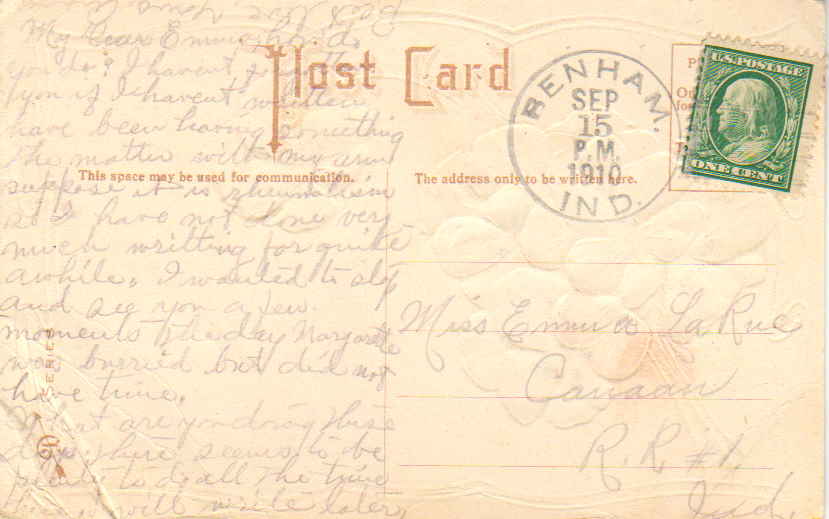 My Dear Emma: how do
you do? I havent forgotten
you if I havent written
have been having something
the matter with my arm
suppose it is rheumatism
so I have not done very
much writting for quite
awhile. I wanted to stop
and see you a few
moments the day Margarette
was burried but did not
have time.
What are you doing these
days there seems to be
plenty to do all the time
here, will write later,
Post Card
This space may be used for communication.
The address only to be written here.
SERIES
BENHAM.
SEP
15
P.M.
1910
IND.
U.S. POSTAGE
ONE CENT
Miss Emma La Rue
Canaan
R.R #1,
Ind.